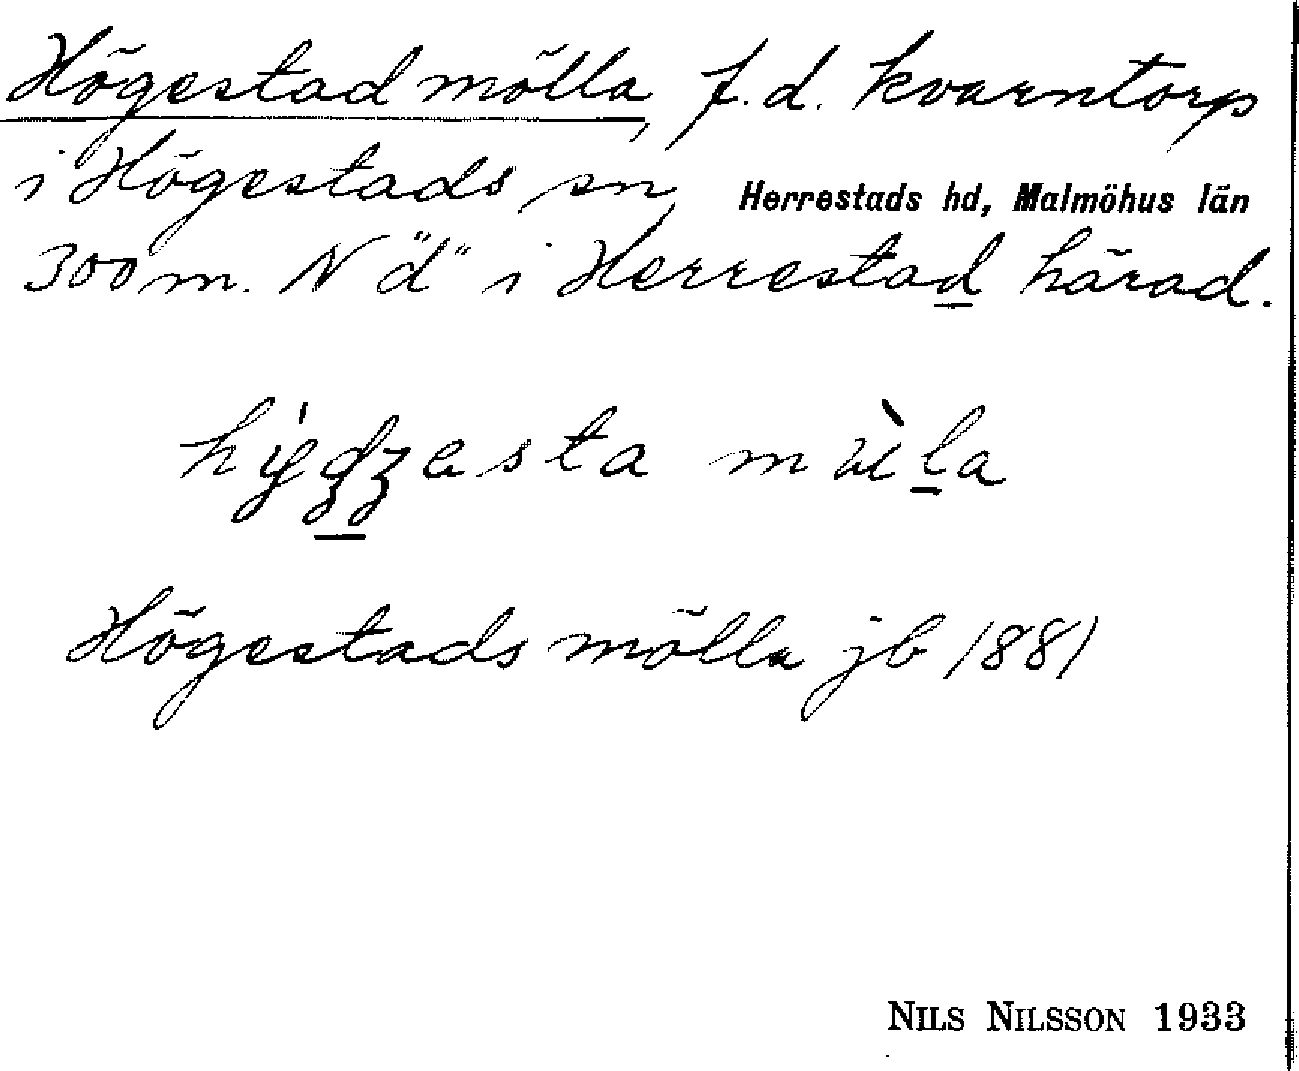 Högestad mölla, f.d. kvarntorp
i Högestads sn, Herrestads hd, Malmöhus län
300 m. N "d" i Herrestad härad.
mùla
Högestads mölla jb 1881
NILS NILSSON 1933